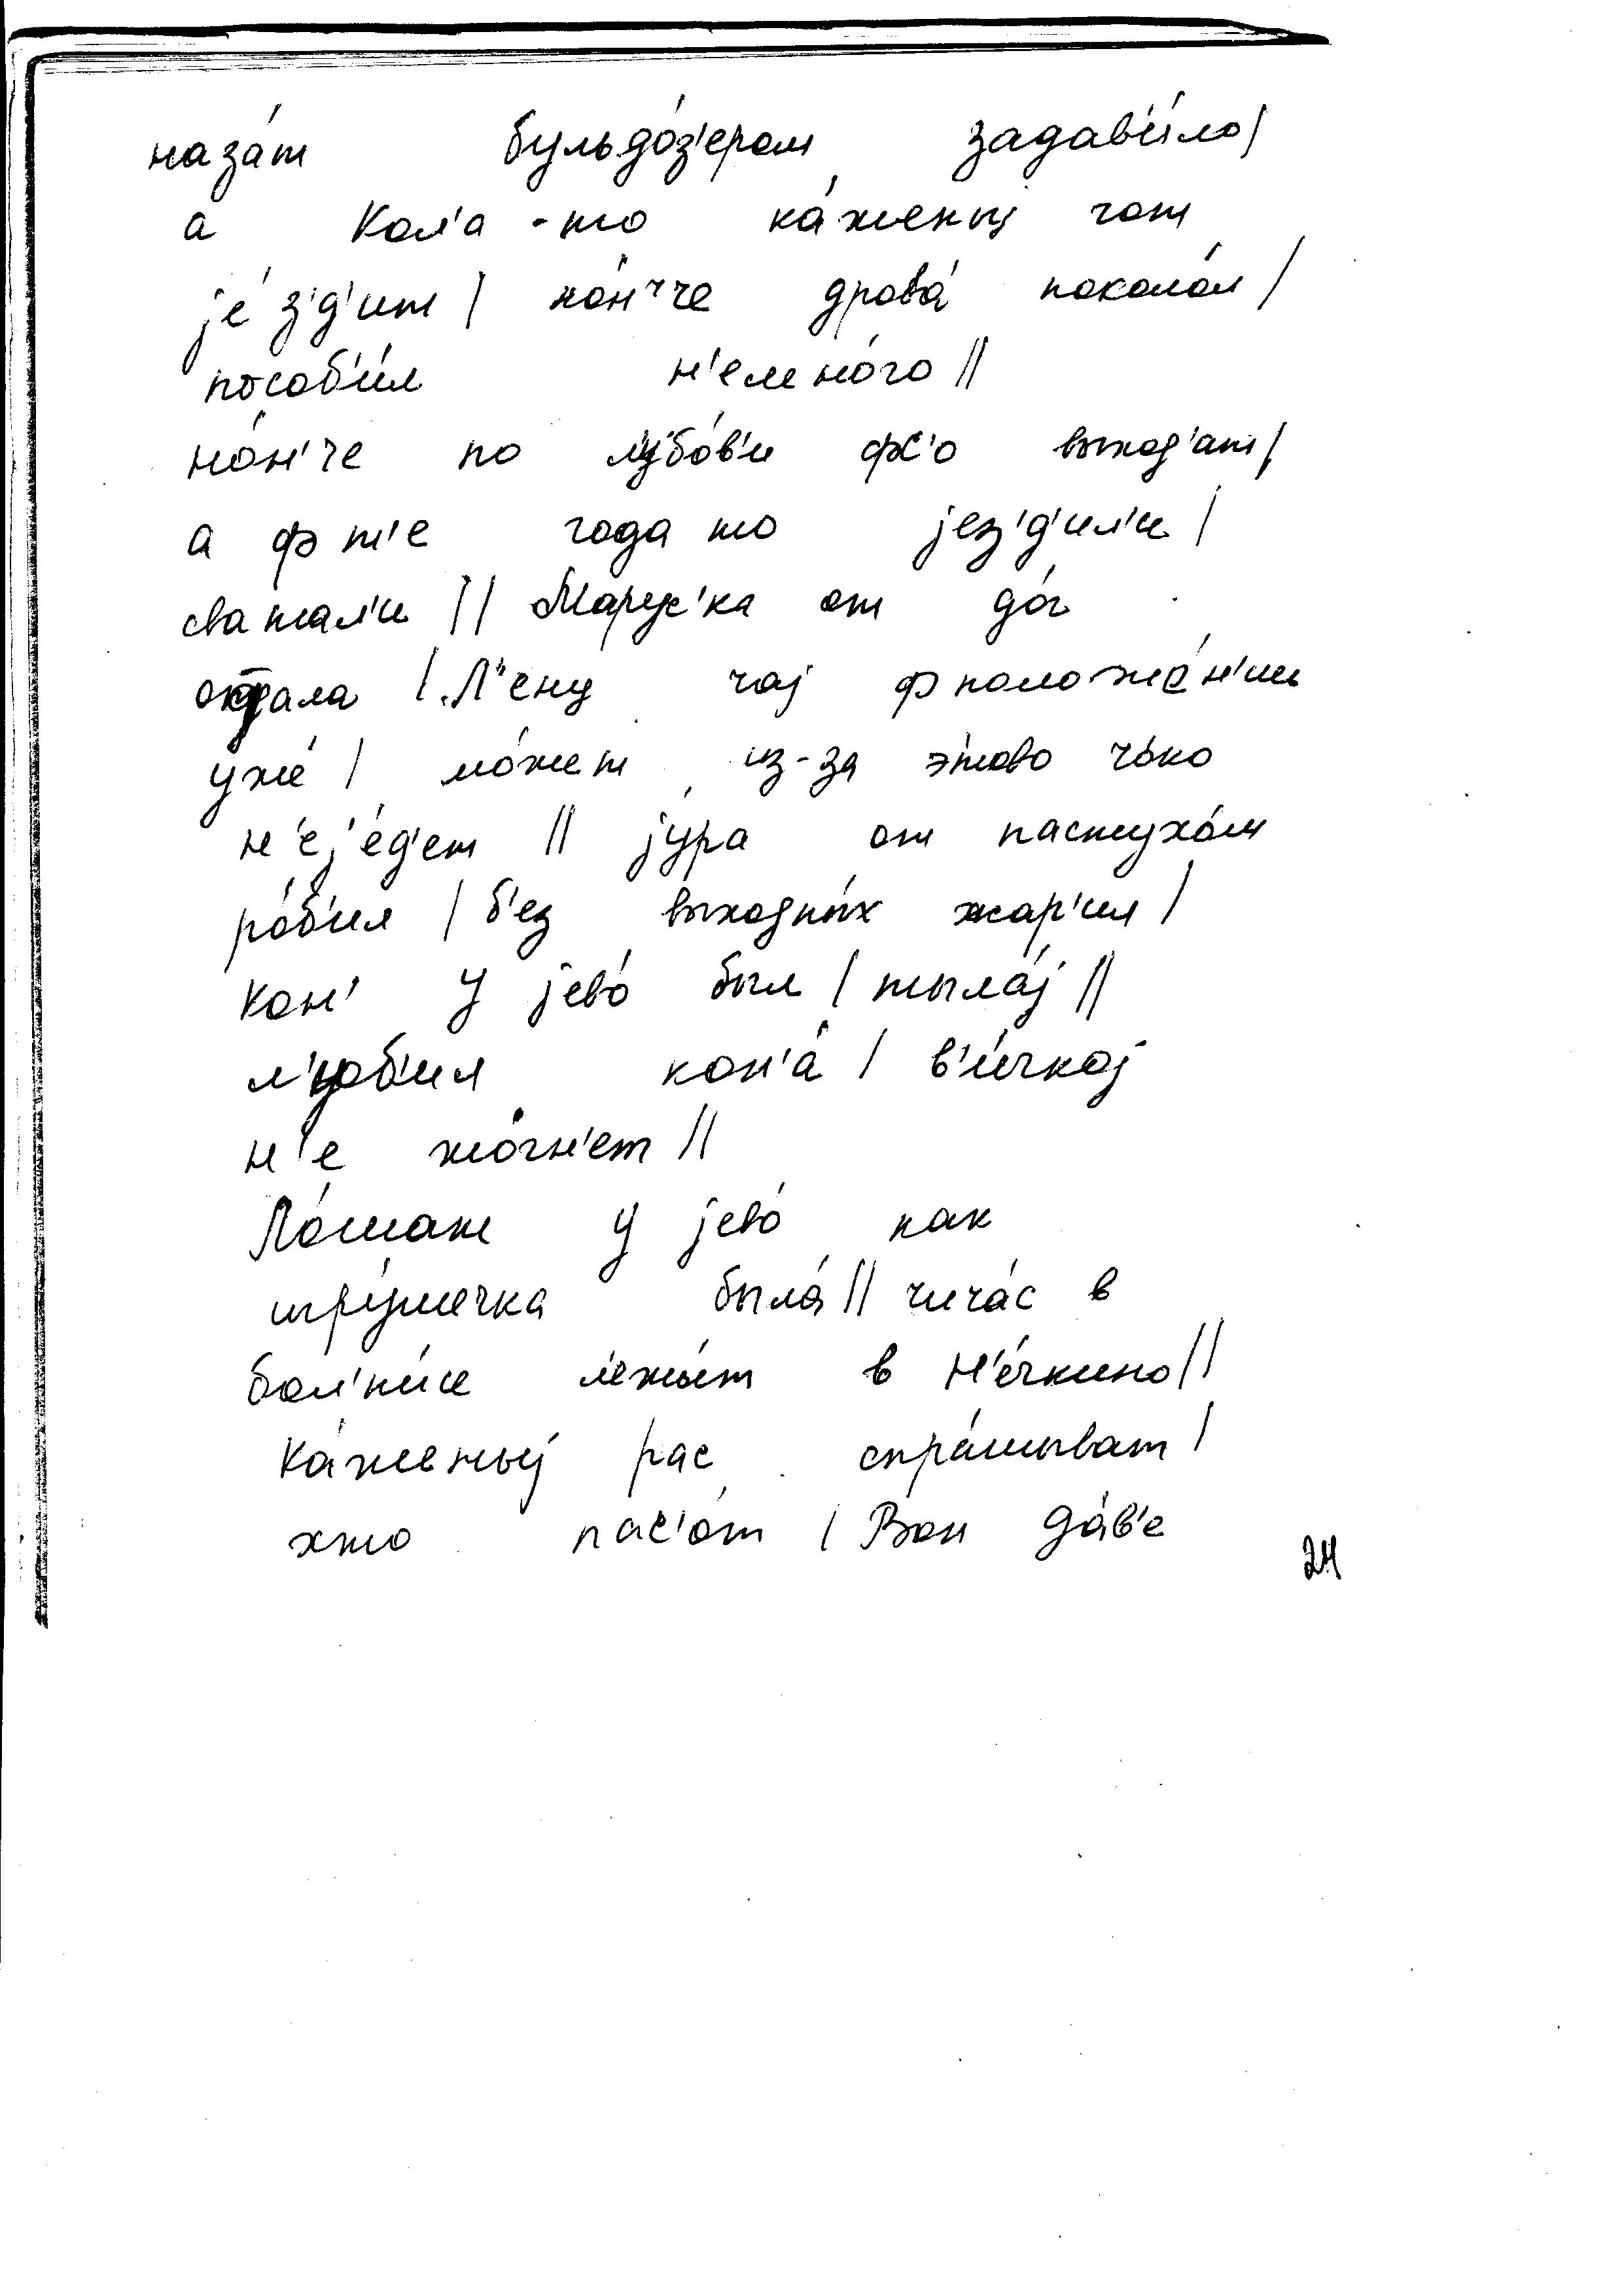 наза́т бульдо́з'ером задав'и́ло/
а Кол'а-то ка́жений гот
jе́з'д'ит / но́н'че дрова́ поколо́л /
пособ'и́л н'емно́го //
но́н'че по л'убо́в'и фс'о выход'ат/
а ф т'е года то jез'д'ил'и /
сватал'и // Марус'ка от до́г
отдала / Л'ену чаj ф положе́н'ии
уже́ / мо́жет из-за э́тово то́ко
н'е jе́д'ет // jу́ра от пастухо́м
ро́б'ил / б'ез выходны́х жар'ил /
кон' у jево́ был / тыла́j //
л'уб'ил кон'а́ / в'и́чкоj
н'е жо́гн'ет //
Ло́шаж у jево́ как
игру́шечка была́ // чича́с в
бол'ни́це л'ежы́т в Н'е́чкино //
ка́жений рас спра́шыват /
хто пас'о́т / Вон да́в'е
24